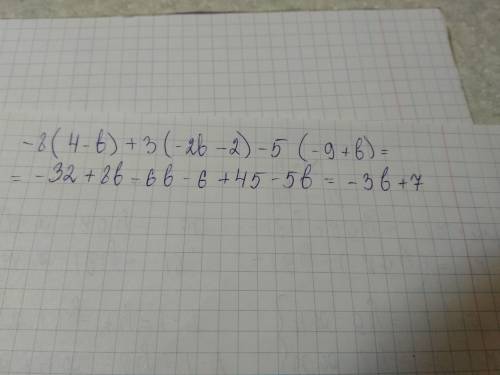 -8(4-b)+3(-2b-2)-5(-9+b)=
= -32+8b-6b-6+45-5b = -3b+7